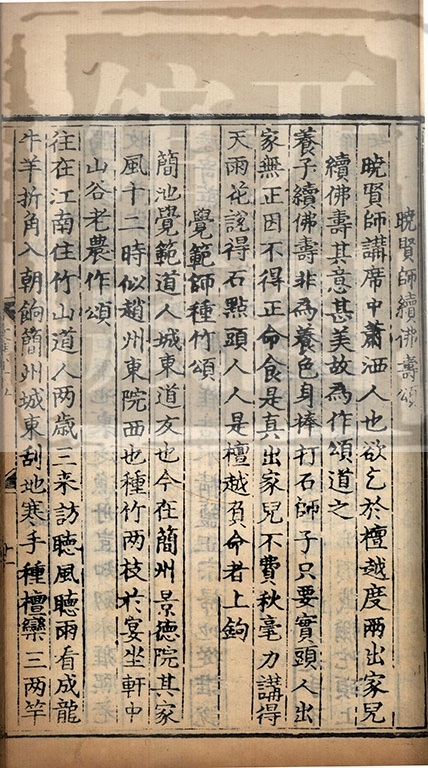 曉賢師續佛壽頌
曉賢師講席中蕭洒人也欲乞於檀越度兩出家兒
續佛壽其意甚美故為作頌道之
養子續佛壽非為養色身捧打石師子只要實頭人出
家無正因不得正命食是真出家兒不費秋毫力講得
天雨花說得石點頭人人是檀越負命者上鉤
覺範師種竹頌
簡池覺範道人城東道友也今在簡州景德院其家
風十二時似趙州東院西也種竹兩枝於宴坐軒中
山谷老農作頌
往在江南住竹山道人兩歲三来訪聴風聴雨看成龍
牛羊折角入朝餉簡州城東刮地寒手種檀欒三兩竿